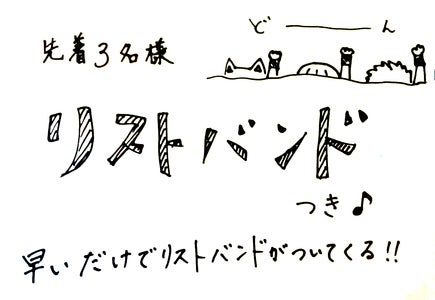 ど――――ん
先着3名様
リストバンド
つき♪
早いだけでリストバンドがついてくる!!